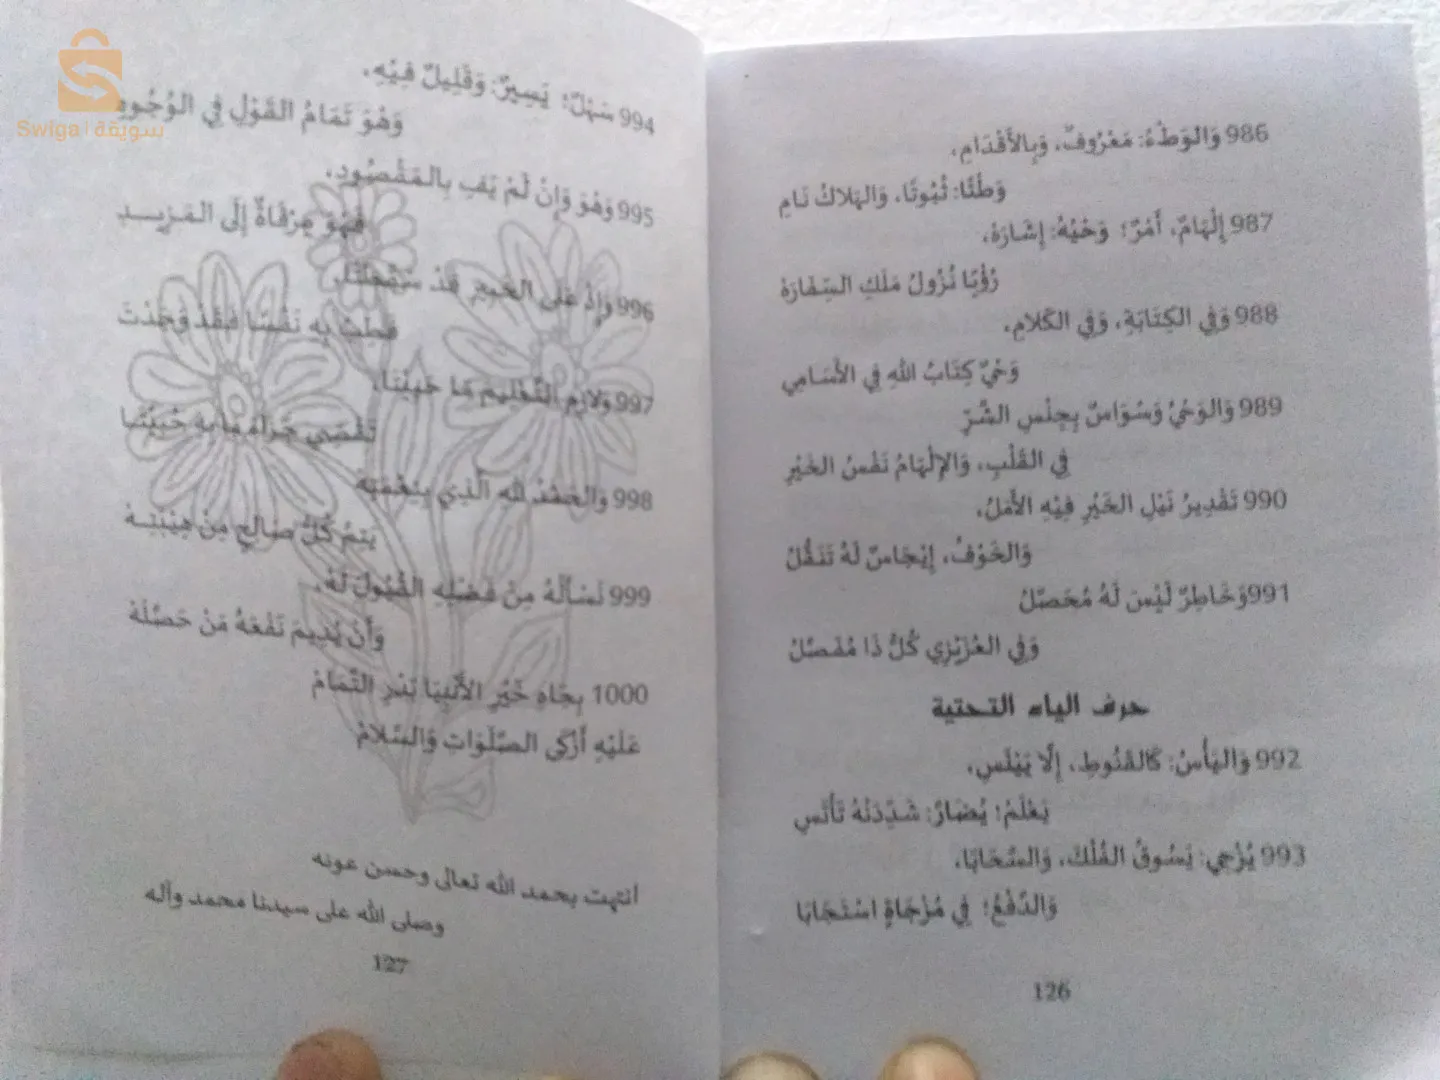 986 وَالوَطْءُ: مَعْرُوفٌ، وَبِالأَقْدَامِ،
وَطْئًا: ثُبُوتًا، وَالهَلاكُ نَامِ
987 إِلْهَامٌ، أَمْرٌ؛ وَحْيُهُ: إِشَارَهْ،
رُؤْيَا نُزُولُ مَلَكِ السِّفَارَهْ
988 وَفِي الكِتَابَةِ، وَفِي الكَلامِ،
وَحْيٌ كِتَابُ اللهِ فِي الأَسَامِي
989 وَالوَحْيُ وَسْوَاسٌ بِجِنْسِ الشَّرِّ
فِي القَلْبِ، وَالإِلْهَامُ نَفْسُ الخَيْرِ
990 تَقْدِيرُ نَيْلِ الخَيْرِ فِيْهِ الأَمَلُ،
وَالخَوْفُ، إِيْجَاسٌ لَهُ تَنَقُّلُ
991 وَخَاطِرٌ لَيْسَ لَهُ مُحَصِّلُ
وَفِي العُزَيْزِي كُلُّ ذَا مُفَصَّلُ
حرف الياء التحتية
992 وَاليَأْسُ: كَالقُنُوطِ، إِلَّا يَيْئَسِ،
يَعْلَمُ؛ يُضَارُ: شَدِّدَنْهُ تَأْنَسِ
993 يُزْجِي: يَسُوقُ الفُلْكَ، وَالسَّحَابَا،
وَالدَّفْعُ؛ فِي مُزْجَاةٍ اسْتَجَابَا
126
994 سَهْلٌ؛ يَسِيرٌ: وَقَلِيلٌ فِيْهِ،
وَهُوَ تَمَامُ القَوْلِ فِي الوُجُوهِ
995 وَهْوَ وَإِنْ لَمْ يَفِ بِالمَقْصُودِ،
فَهْوَ مِرْقَاةٌ إِلَى المَزِيدِ
996 وَإِذْ عَلَى الخَيْرِ قَدْ
فَطِبْ بِهِ نَفْسًا فَقَدْ وَجَدْتَ
997 وَلازِمِ التَّعْلِيمِ مَا حَيِيْتَا،
تَقْضِي جَزَاءَ مَا بِهِ حُبِيْتَا
998 وَالحَمْدُ لله الَّذِي بِنِعْمَتِهْ
يَتِمُّ كُلُّ صَالِحٍ مِنْ هِبَتِهْ
999 نَسْأَلُهُ مِنْ فَضْلِهِ القُبُولَ لَهْ،
وَأَنْ يُدِيمَ نَفْعَهُ مَنْ حَصَّلَهْ
1000 بِجَاهِ خَيْرِ الأَنْبِيَا بَدْرِ التَّمَامْ
عَلَيْهِ أَزْكَى الصَّلَوَاتِ وَالسَّلامْ
انتهت بحمد الله تعالى وحسن عونه
وصلى الله على سيدنا محمد وآله
127
Swiga | سويقة